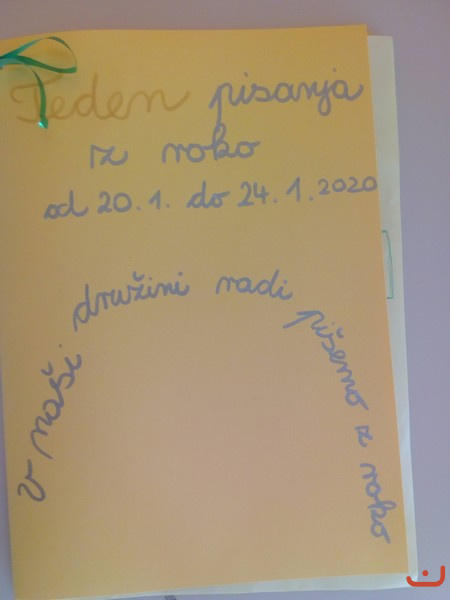 Teden pisanja
iz roko
od 20.1. do 24.1.2020
v naši družini radi pišemo iz roko